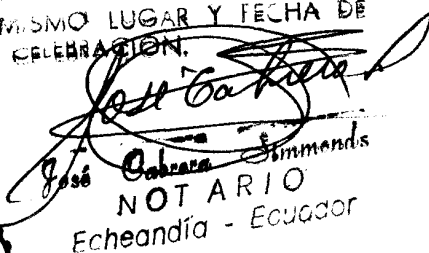 MISMO LUGAR Y FECHA DE
CELEBRACIÓN.
José Cabrera
José Cabrera Simmonds
NOTARIO
Echeandía - Ecuador